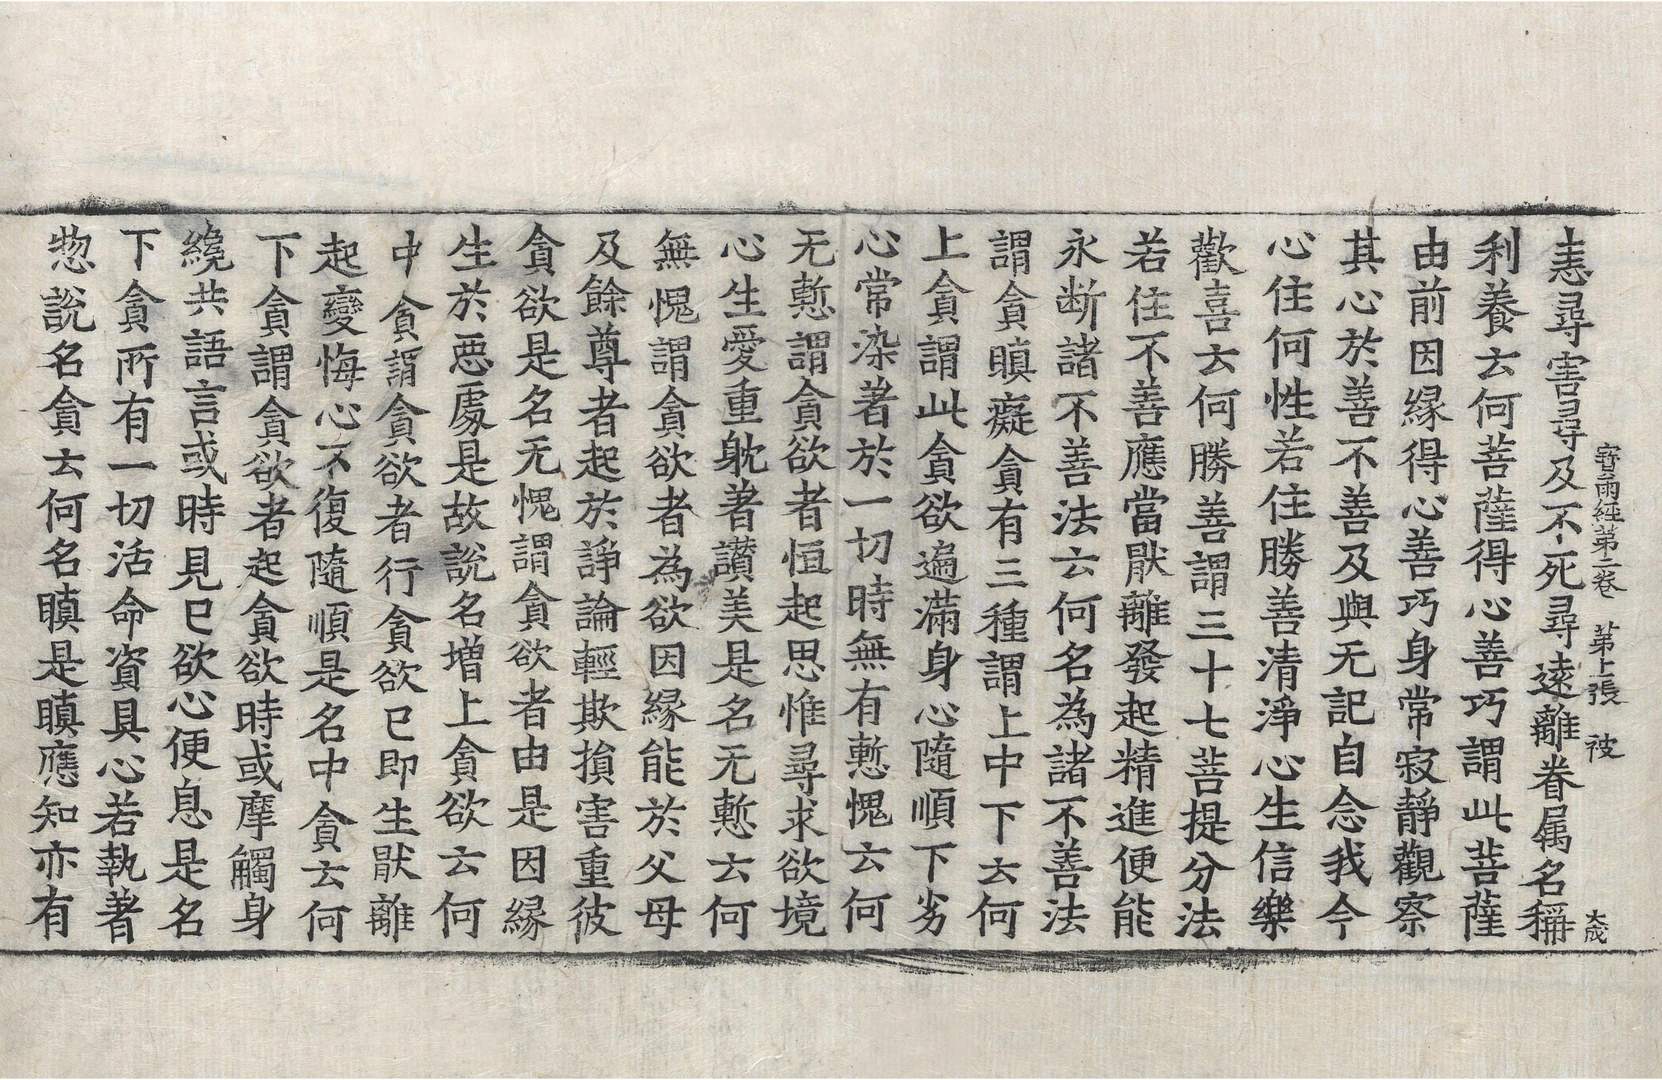 寶雨經第二卷　第上張　彼
大成
恚尋害尋及不死尋遠離眷属名稱
利養云何菩薩得心善巧謂此菩薩
由前因緣得心善巧身常寂靜觀察
其心於善不善及與无記自念我今
心住何性若住勝善清淨心生信樂
歡喜云何勝善謂三十七菩提分法
若住不善應當猒離發起精進便能
永断諸不善法云何名為諸不善法
謂貪瞋癡貪有三種謂上中下云何
上貪謂此貪欲遍滿身心隨順下劣
心常染著於一切時無有慙愧云何
无慙謂貪欲者恒起思惟尋求欲境
心生愛重躭著讚美是名无慙云何
無愧謂貪欲者為欲因緣能於父母
及餘尊者起於諍論輕欺損害重彼
貪欲是名无愧謂貪欲者由是因緣
生於惡處是故說名增上貪欲云何
中貪謂貪欲者行貪欲已即生猒離
起變悔心不復隨順是名中貪云何
下貪謂貪欲者起貪欲時或摩觸身
纔共語言或時見已欲心便息是名
下貪所有一切活命資具心若執著
惣說名貪云何名瞋是瞋應知亦有